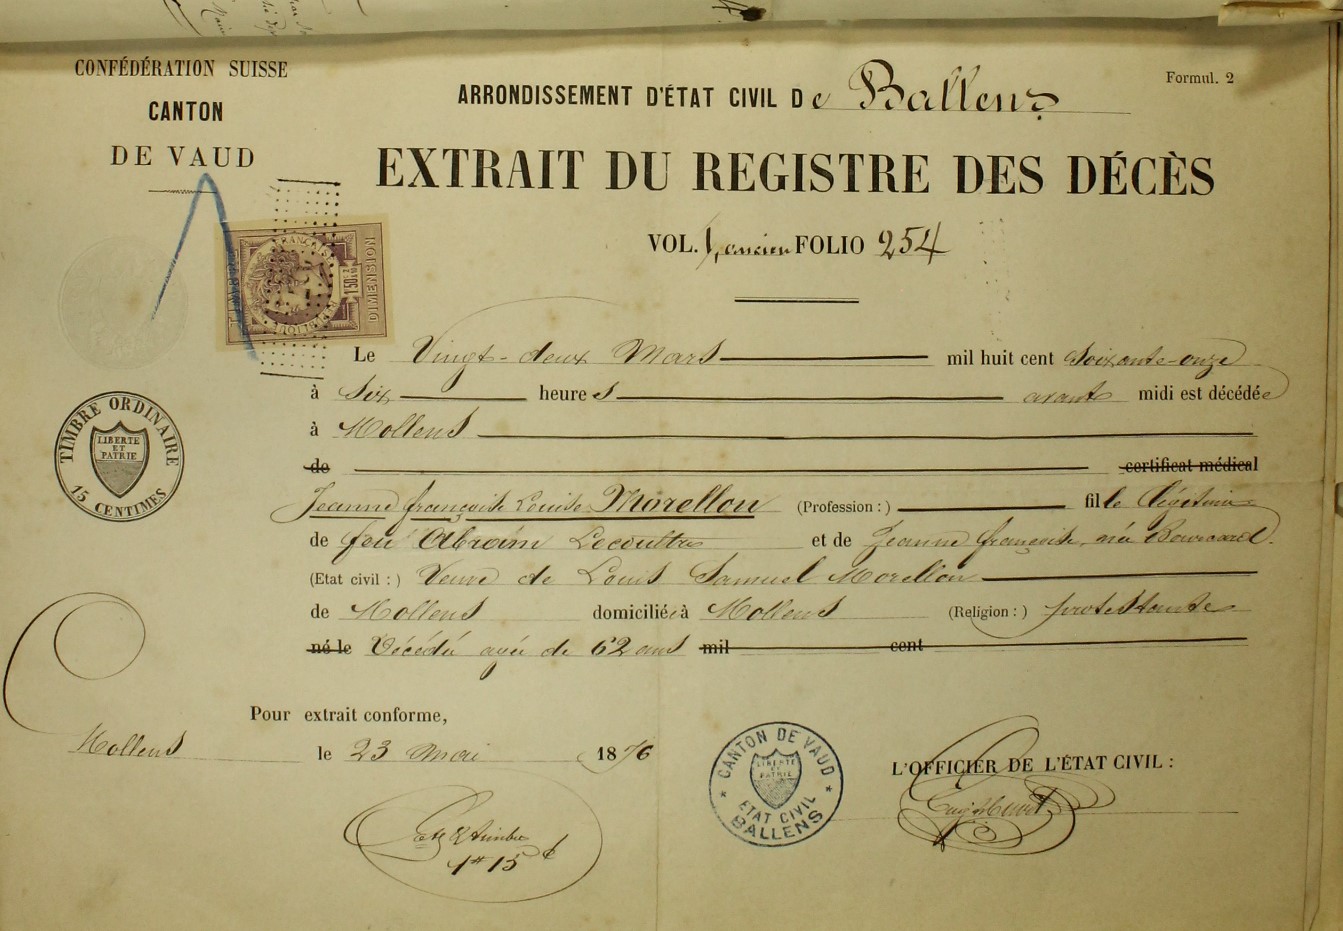 CONFÉDÉRATION SUISSE
CANTON
DE VAUD
Formul. 2
ARRONDISSEMENT D'ÉTAT CIVIL De Ballens
EXTRAIT DU REGISTRE DES DÉCÈS
VOL. 1, ancien FOLIO 254
TIMBRE
RÉPUBLIQUE FRANÇAISE
1 50
DIMENSION
TIMBRE ORDINAIRE
LIBERTE
ET
PATRIE
15 CENTIMES
Le Vingt-deux Mars mil huit cent soixante-onze
à Six heures avant midi est décédée
à Mollens
de certificat médical
Jeanne françoise Louise Morellon (Profession:) fille légitime
de feu Abram Lecoultre et de Jeanne françoise, née Bourcard.
(Etat civil:) Veuve de Louis Samuel Morellon
de Mollens domiciliée à Mollens (Religion:) protestante
né le Décédée agée de 62 ans mil cent
Pour extrait conforme,
Mollens le 23 Mai 1876
CANTON DE VAUD
LIBERTE
ET
PATRIE
ETAT CIVIL
BALLENS
L'OFFICIER DE L'ÉTAT CIVIL:
& timbre
1 15